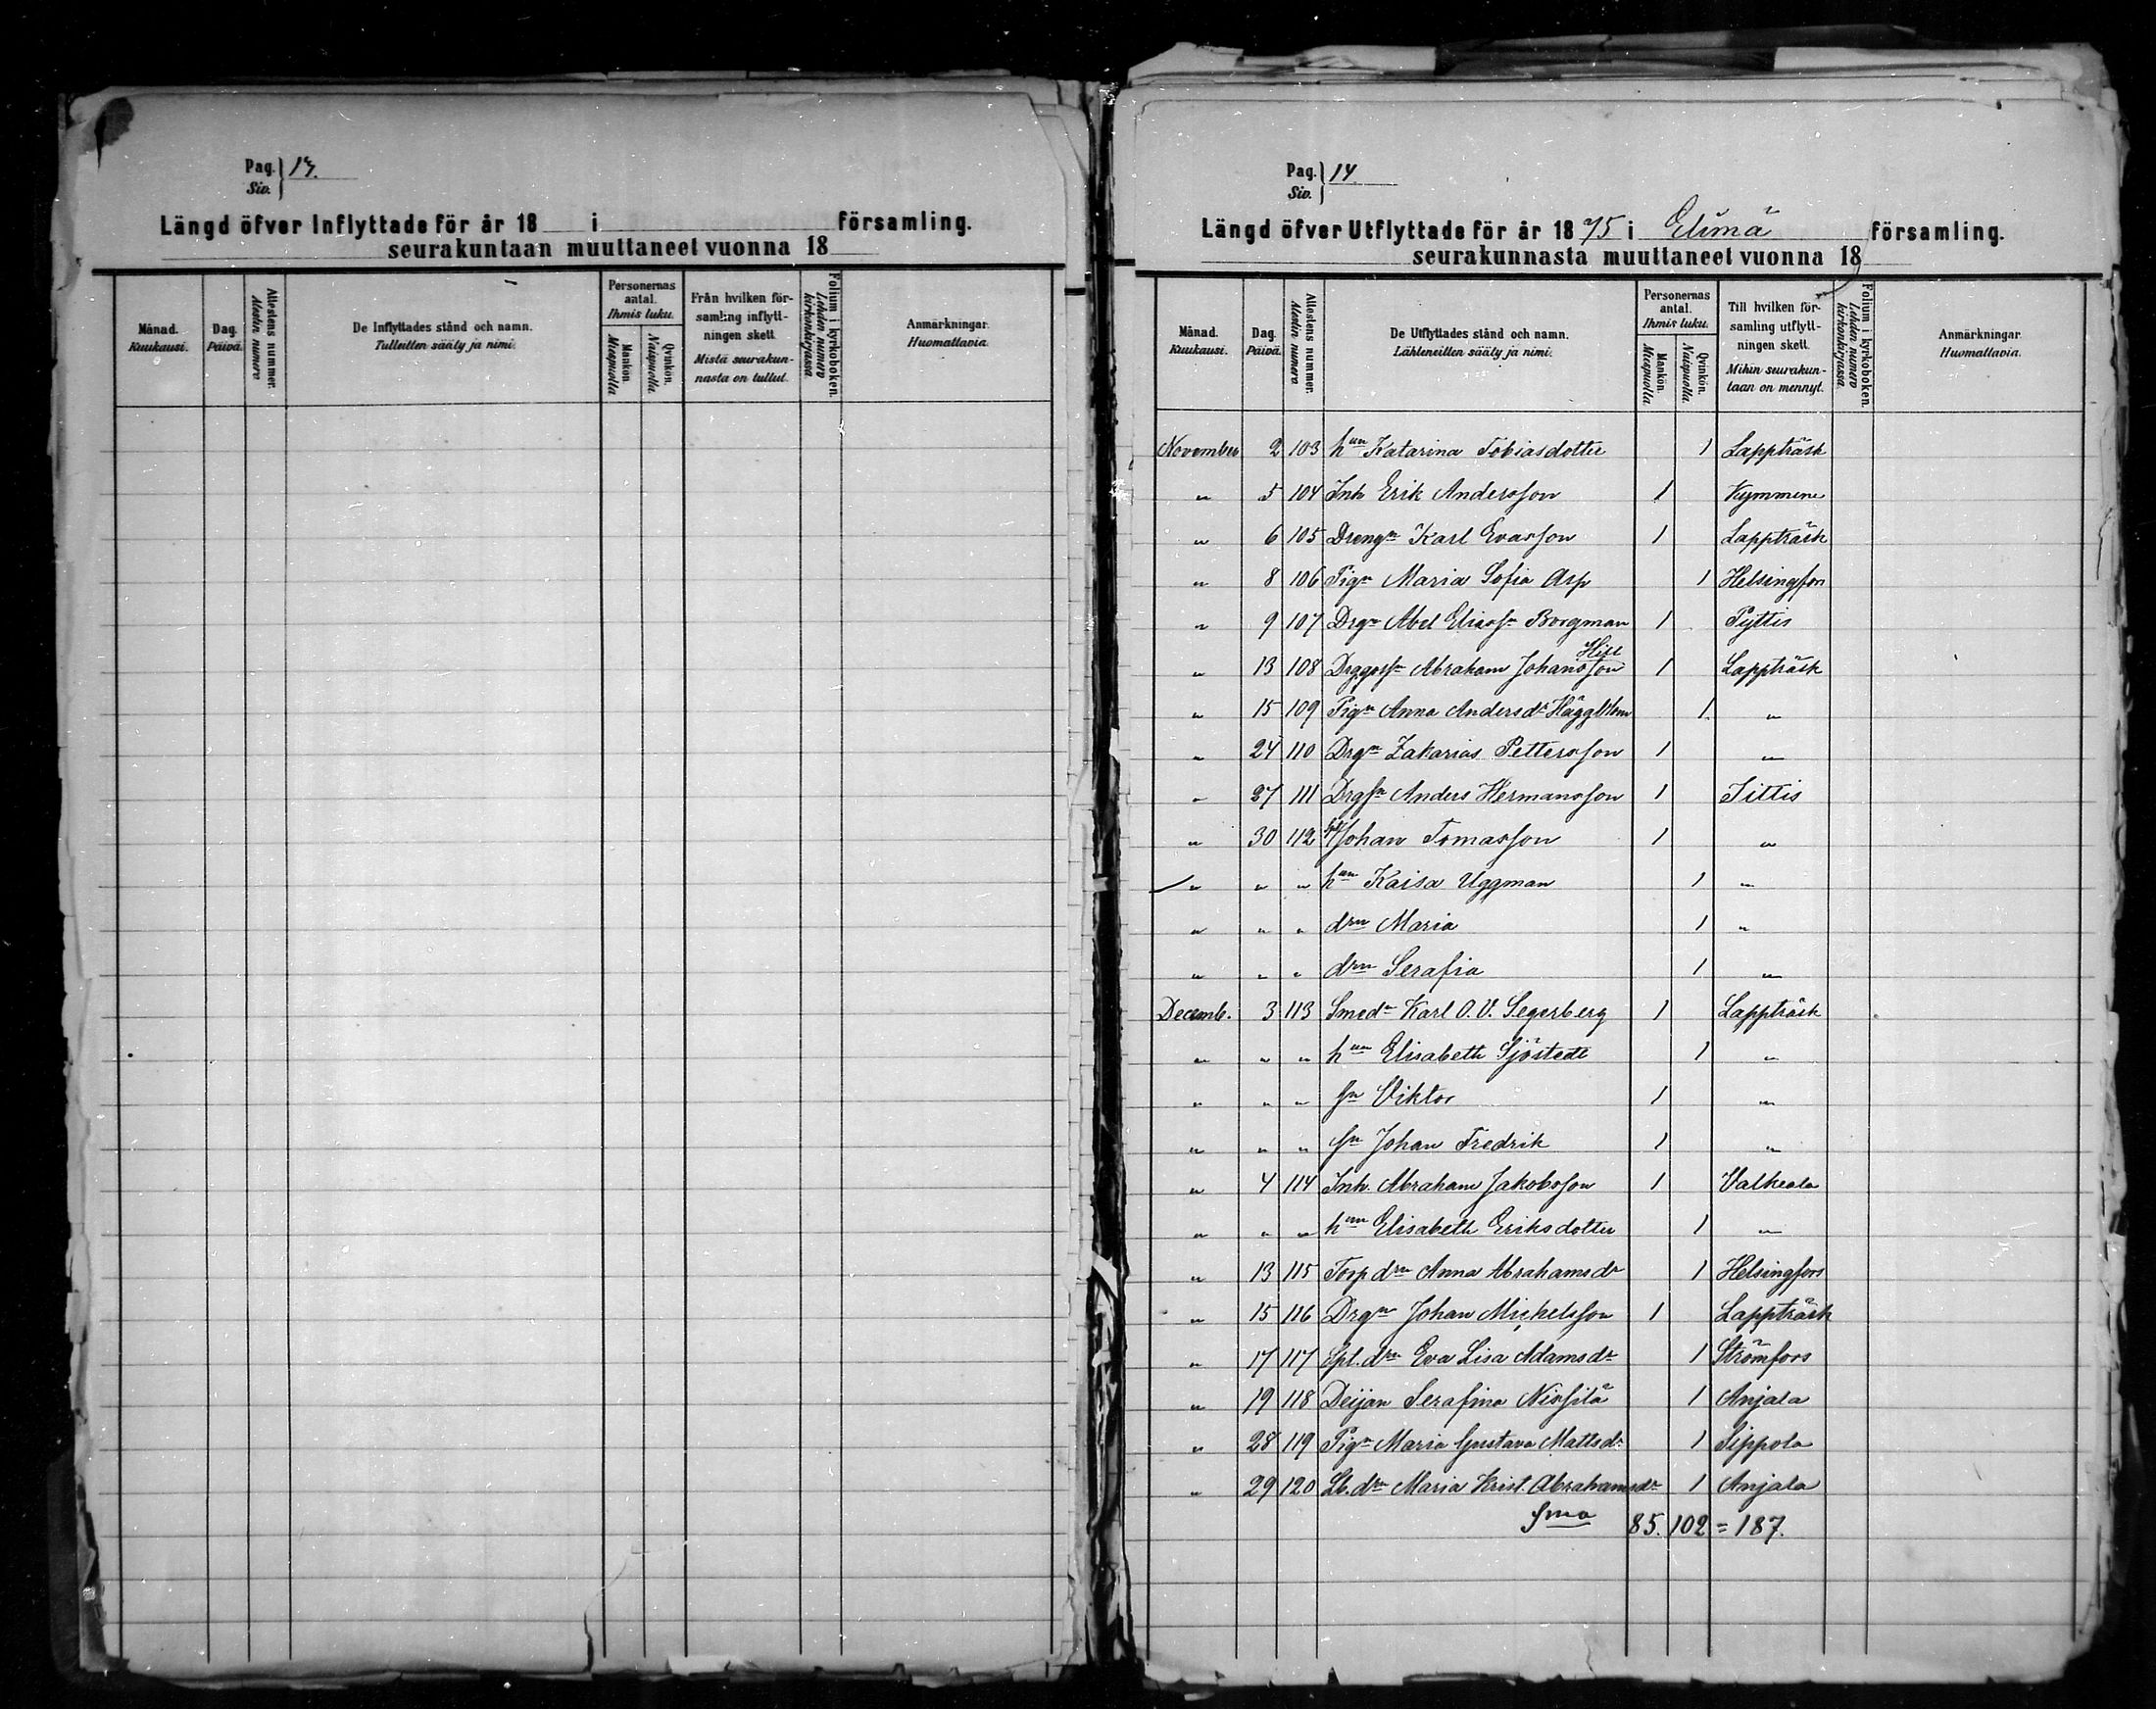 Pag. 13.
Siv.
Längd öfver Inflyttade för år 18 i församling.
seurakuntaan muuttaneet vuonna 18
Månad. Kuukausi.
Dag. Päivä.
Attestens nummer. Atestin numero
De Inflyttades stånd och namn. Tulleitten sääty ja nimi.
Personernas antal. Ihmis luku.
Mankön. Miespuolia
Qvinkön. Naispuolia.
Från hvilken församling inflyttningen skett. Mistä seurakunnasta on tullut.
Folium i kyrkoboken. Lehden numero kirkonkirjassa
Anmärkningar. Huomattavia.
Pag. 14
Siv.
Längd öfver Utflyttade för år 1875 i Elimä församling.
seurakunnasta muuttaneet vuonna 18
Månad. Kuukausi.
Dag. Päivä.
Attestens nummer. Atestin numero
De Utflyttades stånd och namn. Lähteneitten sääty ja nimi.
Personernas antal. Ihmis luku.
Mankön. Miespuolia
Qvinkön. Naispuolia.
Till hvilken församling utflyttningen skett. Mihin seurakuntaan on mennyt.
Folium i kyrkoboken. Lehden numero kirkonkirjassa.
Anmärkningar. Huomattavia.
November 2 103 hun Katarina Tobiasdotter 1 Lappträsk
" 5 104 Inh Erik Andersson 1 Kymmene
" 6 105 Drengn Karl Evasson 1 Lappträsk
" 8 106 Pign Maria Sofia Asp 1 Helsingfors
" 9 107 Drgn Abel Eliassn Borgman 1 Pyttis
" 13 108 Drggossn Abraham Johansson Hill 1 Lappträsk
" 15 109 Pign Anna Andersdr Häggblom 1 "
" 24 110 Drgn Zakarias Pettersson 1 "
" 27 111 Drgsn Anders Hermansson 1 Iittis
" 30 112 Johan Tomasson 1 "
" " " hun Kaisa Uggman 1 "
" " " drn Maria 1 "
" " " drn Serafia 1 "
Decemb. 3 113 Smedn Karl O. V. Segerberg 1 Lappträsk
" " " hun Elisabeth Sjöstedt 1 "
" " " sn Viktor 1 "
" " " sn Johan Fredrik 1 "
" 4 114 Inh. Abraham Jakobsson 1 Valkeala
" " " hun Elisabeth Eriksdotter 1 "
" 13 115 Torp drn Anna Abrahamsdr 1 Helsingfors
" 15 116 Drgn Johan Mickelsson 1 Lappträsk
" 17 117 Spt. drn Eva Lisa Adamsdr 1 Strömfors
" 19 118 Deijan Serafina Nissilä 1 Anjala
" 28 119 Pign Maria Gustava Mattsdr 1 Sippola
" 29 120 Lb. drn Maria Krist. Abrahamsdr 1 Anjala
Sma 85. 102 = 187.